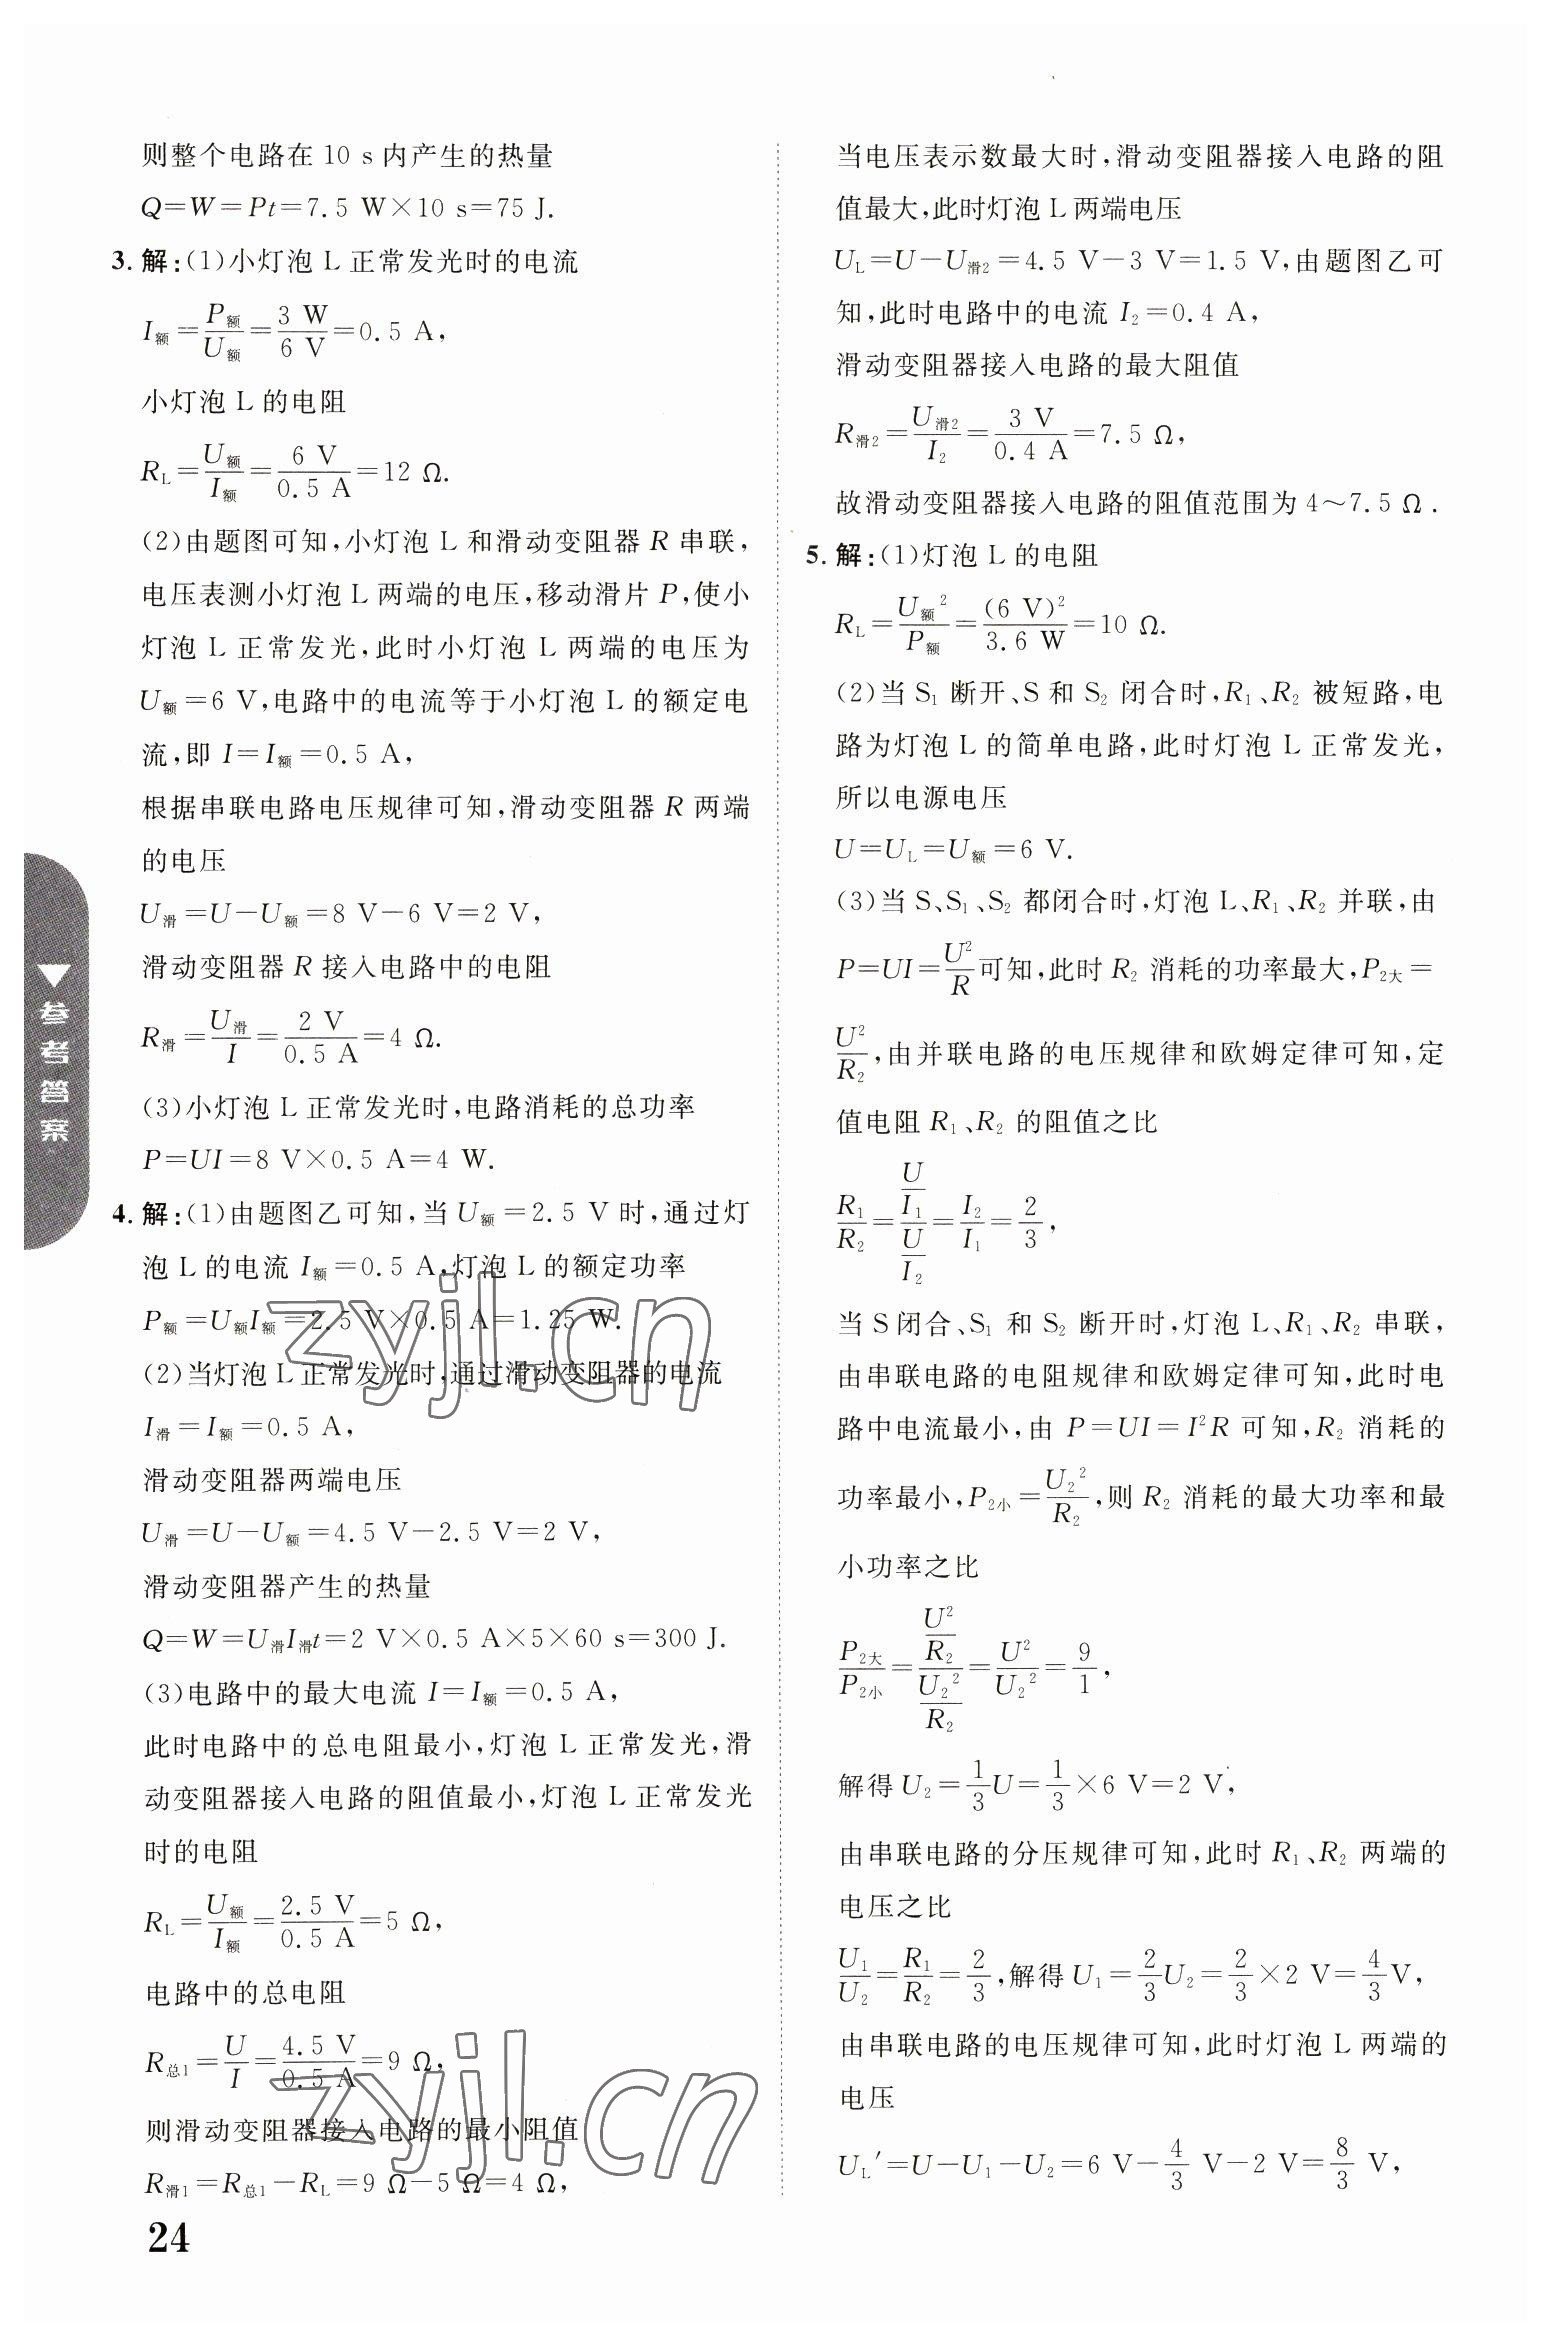 则整个电路在 10 s 内产生的热量
Q=W=Pt=7.5 W×10 s=75 J.
3. 解:(1)小灯泡 L 正常发光时的电流
I额=P额/U额=3 W/6 V=0.5 A,
小灯泡 L 的电阻
RL=U额/I额=6 V/0.5 A=12 Ω.
(2)由题图可知,小灯泡 L 和滑动变阻器 R 串联,
电压表测小灯泡 L 两端的电压,移动滑片 P,使小
灯泡 L 正常发光,此时小灯泡 L 两端的电压为
U额=6 V,电路中的电流等于小灯泡 L 的额定电
流,即 I=I额=0.5 A,
根据串联电路电压规律可知,滑动变阻器 R 两端
的电压
U滑=U-U额=8 V-6 V=2 V,
滑动变阻器 R 接入电路中的电阻
R滑=U滑/I=2 V/0.5 A=4 Ω.
(3)小灯泡 L 正常发光时,电路消耗的总功率
P=UI=8 V×0.5 A=4 W.
4. 解:(1)由题图乙可知,当 U额=2.5 V 时,通过灯
泡 L 的电流 I额=0.5 A,灯泡 L 的额定功率
P额=U额I额=2.5 V×0.5 A=1.25 W.
(2)当灯泡 L 正常发光时,通过滑动变阻器的电流
I滑=I额=0.5 A,
滑动变阻器两端电压
U滑=U-U额=4.5 V-2.5 V=2 V,
滑动变阻器产生的热量
Q=W=U滑I滑t=2 V×0.5 A×5×60 s=300 J.
(3)电路中的最大电流 I=I额=0.5 A,
此时电路中的总电阻最小,灯泡 L 正常发光,滑
动变阻器接入电路的阻值最小,灯泡 L 正常发光
时的电阻
RL=U额/I额=2.5 V/0.5 A=5 Ω,
电路中的总电阻
R总1=U/I=4.5 V/0.5 A=9 Ω,
则滑动变阻器接入电路的最小阻值
R滑1=R总1-RL=9 Ω-5 Ω=4 Ω,
当电压表示数最大时,滑动变阻器接入电路的阻
值最大,此时灯泡 L 两端电压
UL=U-U滑2=4.5 V-3 V=1.5 V,由题图乙可
知,此时电路中的电流 I2=0.4 A,
滑动变阻器接入电路的最大阻值
R滑2=U滑2/I2=3 V/0.4 A=7.5 Ω,
故滑动变阻器接入电路的阻值范围为 4～7.5 Ω.
5. 解:(1)灯泡 L 的电阻
RL=U额²/P额=(6 V)²/3.6 W=10 Ω.
(2)当 S1 断开、S 和 S2 闭合时,R1、R2 被短路,电
路为灯泡 L 的简单电路,此时灯泡 L 正常发光,
所以电源电压
U=UL=U额=6 V.
(3)当 S、S1、S2 都闭合时,灯泡 L、R1、R2 并联,由
P=UI=U²/R可知,此时 R2 消耗的功率最大,P2大=
U²/R2,由并联电路的电压规律和欧姆定律可知,定
值电阻 R1、R2 的阻值之比
R1/R2=(U/I1)/(U/I2)=I2/I1=2/3,
当 S 闭合、S1 和 S2 断开时,灯泡 L、R1、R2 串联,
由串联电路的电阻规律和欧姆定律可知,此时电
路中电流最小,由 P=UI=I²R 可知,R2 消耗的
功率最小,P2小=U2²/R2,则 R2 消耗的最大功率和最
小功率之比
P2大/P2小=(U²/R2)/(U2²/R2)=U²/U2²=9/1,
解得 U2=1/3U=1/3×6 V=2 V,
由串联电路的分压规律可知,此时 R1、R2 两端的
电压之比
U1/U2=R1/R2=2/3,解得 U1=2/3U2=2/3×2 V=4/3V,
由串联电路的电压规律可知,此时灯泡 L 两端的
电压
UL′=U-U1-U2=6 V-4/3 V-2 V=8/3 V,
参考答案
24
zyjl.cn
zyjl.cn